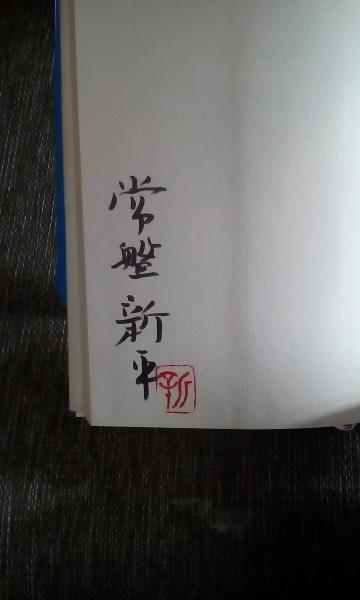 常盤新平